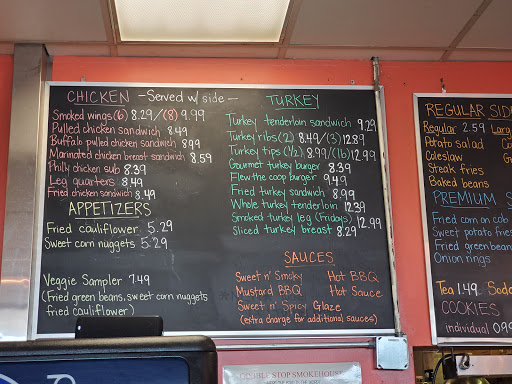 CHICKEN -Served w/ side-
Smoked wings (6) 8.29/(8) 9.99
Pulled chicken sandwich 8.49
Buffalo pulled chicken sandwich 8.99
Marinated chicken breast sandwich 8.59
Philly chicken sub 8.39
Leg quarters 8.49
Fried chicken sandwich 8.49
APPETIZERS
Fried cauliflower 5.29
Sweet corn nuggets 5.29
Veggie Sampler 7.49
(Fried green beans, sweet corn nuggets
fried cauliflower)
TURKEY
Turkey tenderloin sandwich 9.29
Turkey ribs (2) 8.49/(3) 12.89
Turkey tips (1/2) 8.99/(1lb) 12.99
Gourmet turkey burger 8.39
Flew the coop burger 9.49
Fried turkey sandwich 8.99
Whole turkey tenderloin 12.39
Smoked turkey leg (Fridays) 12.99
Sliced turkey breast 8.29
SAUCES
Sweet n' Smoky Hot BBQ
Mustard BBQ Hot Sauce
Sweet n' Spicy Glaze
(extra charge for additional sauces)
REGULAR SIDE
Regular 2.59
Potato salad
Coleslaw
Steak fries
Baked beans
PREMIUM
Fried corn on cob
Sweet potato fries
Fried green bean
Onion rings
Tea 1.49
COOKIES
individual
DOUBLE STOP SMOKEHOUSE